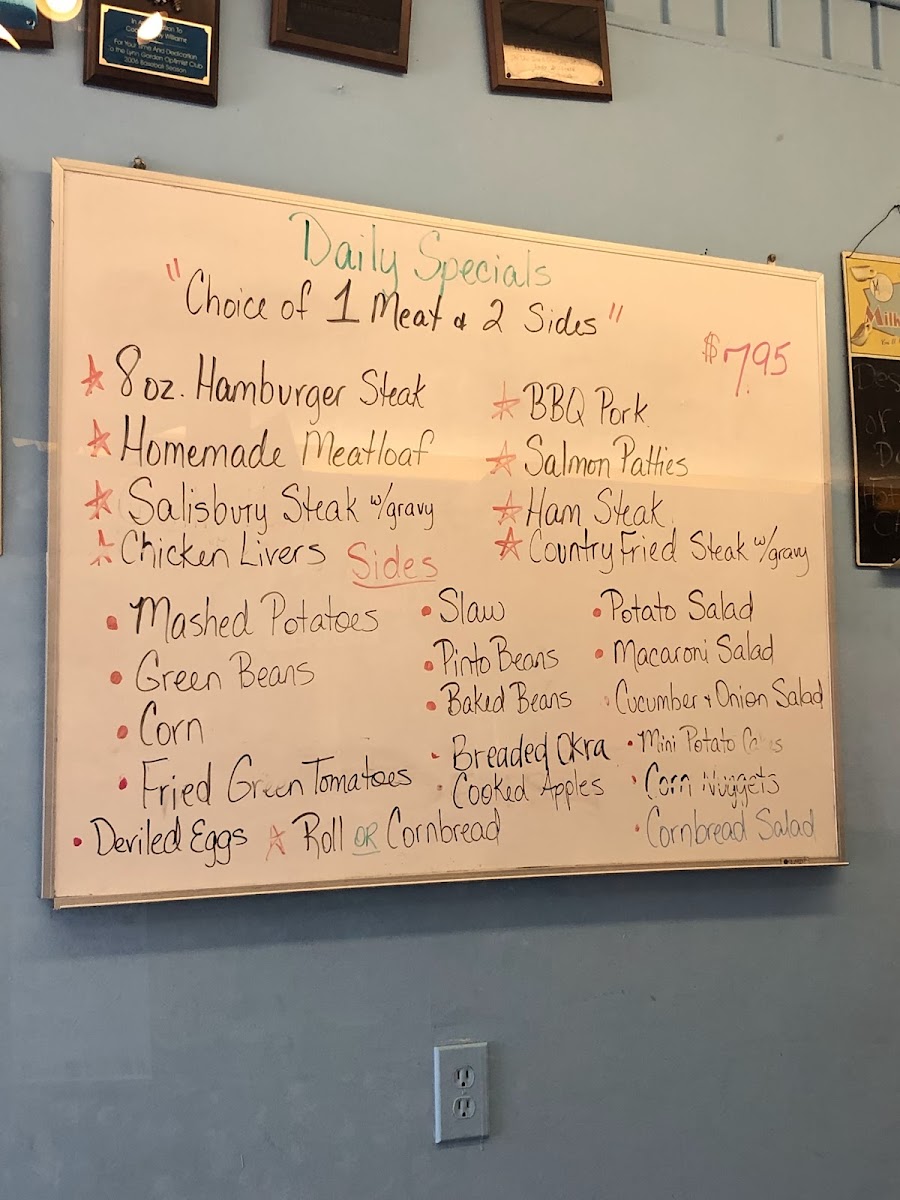 In Appreciation To
Williams
For Your Time And Dedication
To the Lynn Garden Optimist Club
2006 Baseball Season
Daily Specials
"Choice of 1 Meat & 2 Sides"
$7.95
8 oz. Hamburger Steak
Homemade Meatloaf
Salisbury Steak w/gravy
Chicken Livers
BBQ Pork
Salmon Patties
Ham Steak
Country Fried Steak w/gravy
Sides
• Mashed Potatoes
• Green Beans
• Corn
• Fried Green Tomatoes
• Deviled Eggs
• Slaw
• Pinto Beans
• Baked Beans
• Breaded Okra
• Cooked Apples
• Potato Salad
• Macaroni Salad
• Cucumber & Onion Salad
• Mini Potato Cakes
• Corn Nuggets
• Cornbread Salad
Roll OR Cornbread
Milk
or